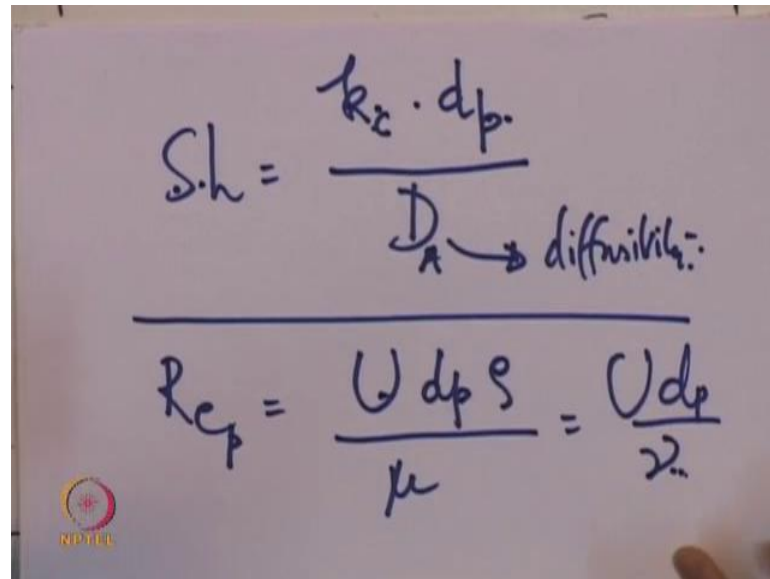 S.h = k_c . d_p.
D_A → diffusibility
Re_p = U d_p ρ / μ = U d_p / ν
NPTEL